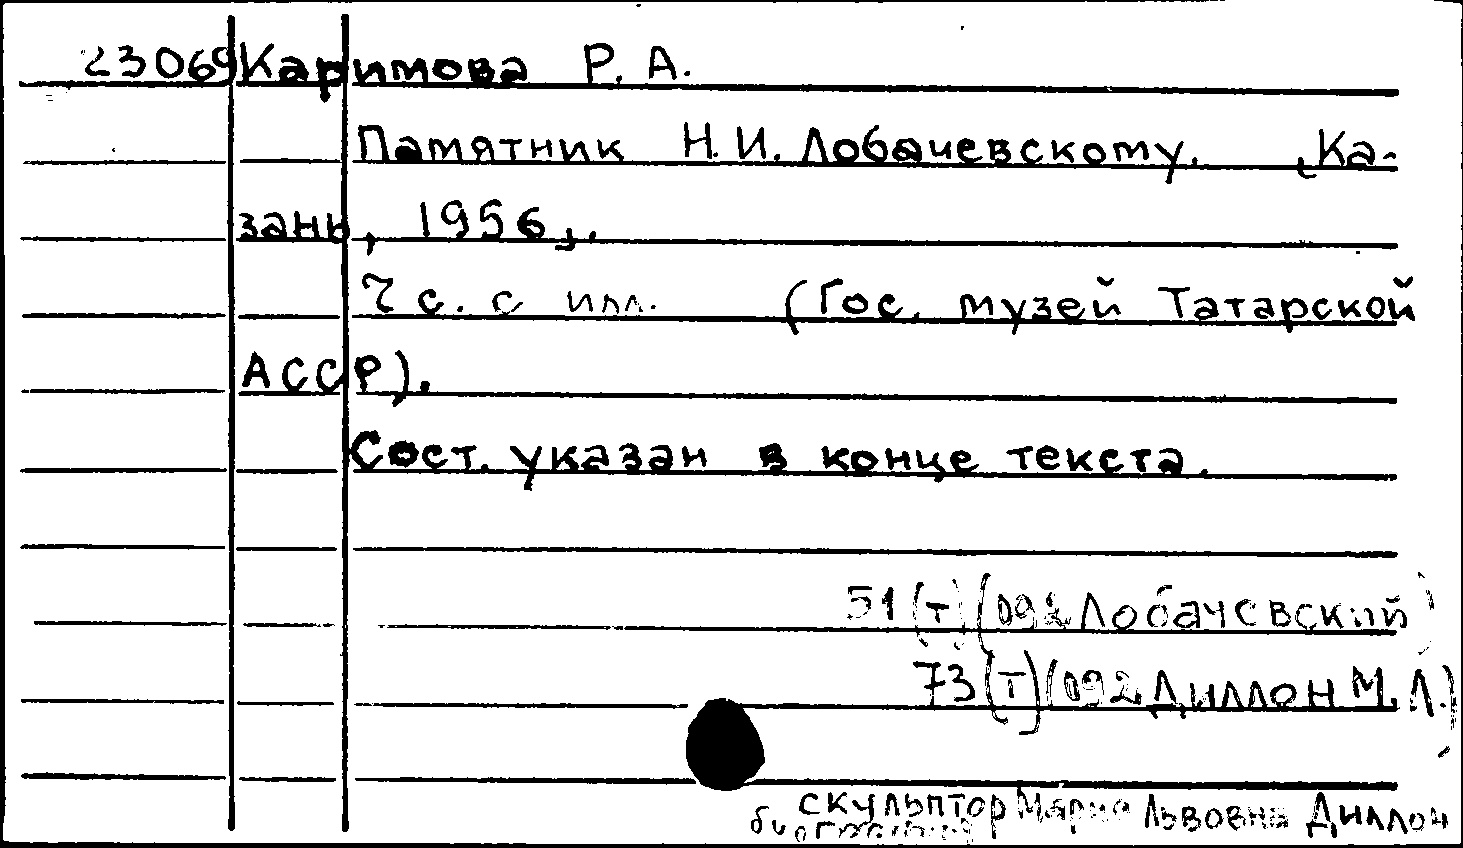 23069 Каримова Р. А.
Памятник Н. И. Лобачевскому. [Ка-
зань, 1956].
7 с. с илл. (Гос. музей Татарской
АССР).
Сост. указан в конце текста.
51(т)(092 Лобачевский)
73(т)(092 Диллон М. Л.)
скульптор Мария Львовна Диллон
биография